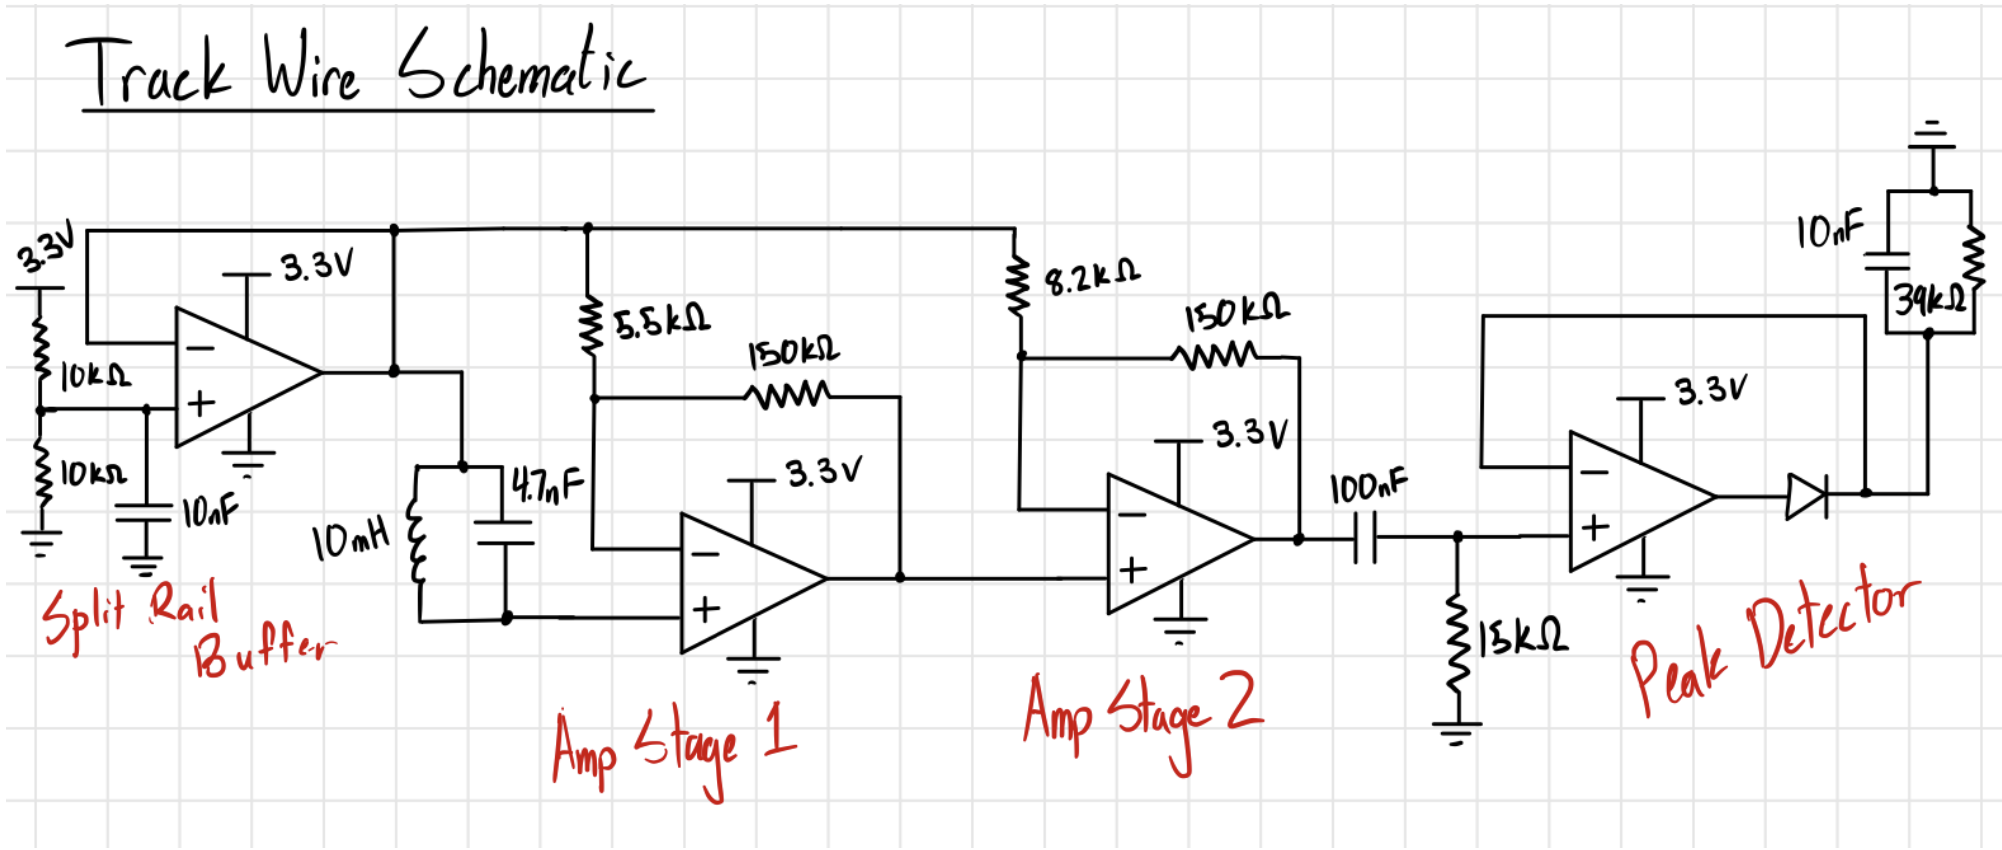 Track Wire Schematic
3.3V
10kΩ
10kΩ
10nF
3.3V
-
+
Split Rail
Buffer
10mH
4.7nF
5.5kΩ
150kΩ
3.3V
-
+
Amp Stage 1
8.2kΩ
150kΩ
3.3V
-
+
Amp Stage 2
100nF
15kΩ
3.3V
-
+
10nF
39kΩ
Peak Detector